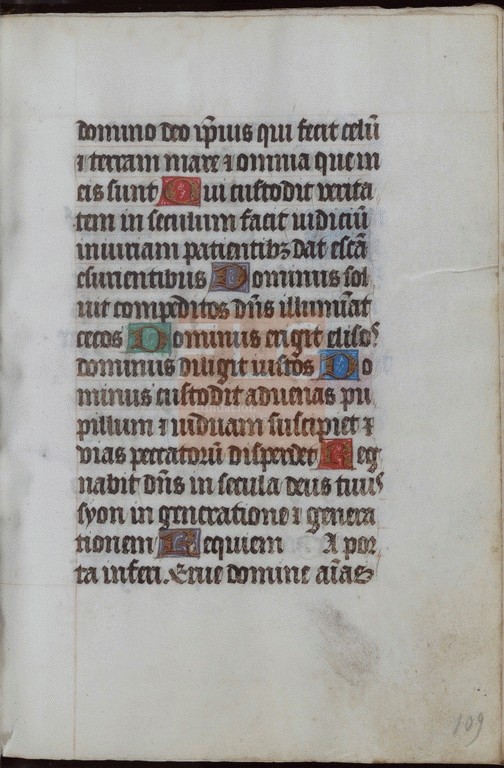 domino deo ip̄ius qui fecit celū
⁊ terram mare ⁊ omnia que in
eis sunt Qui custodit verita
tem in seculum facit iudiciū
iniuriam patientibꝫ dat escā
esurientibus Dominus sol
uit compeditos dn̄s illumīat
cecos Dominus erigit elisoꝰ
dominus diligit iustos Do
minus custodit aduenas pu
pillum ⁊ viduam suscipiet ⁊
vias peccatorū disperdet Reg
nabit dn̄s in secula deus tuuꝰ
syon in generatione ⁊ genera
tionem Requiem A por
ta inferi. Erue domine aīas
109